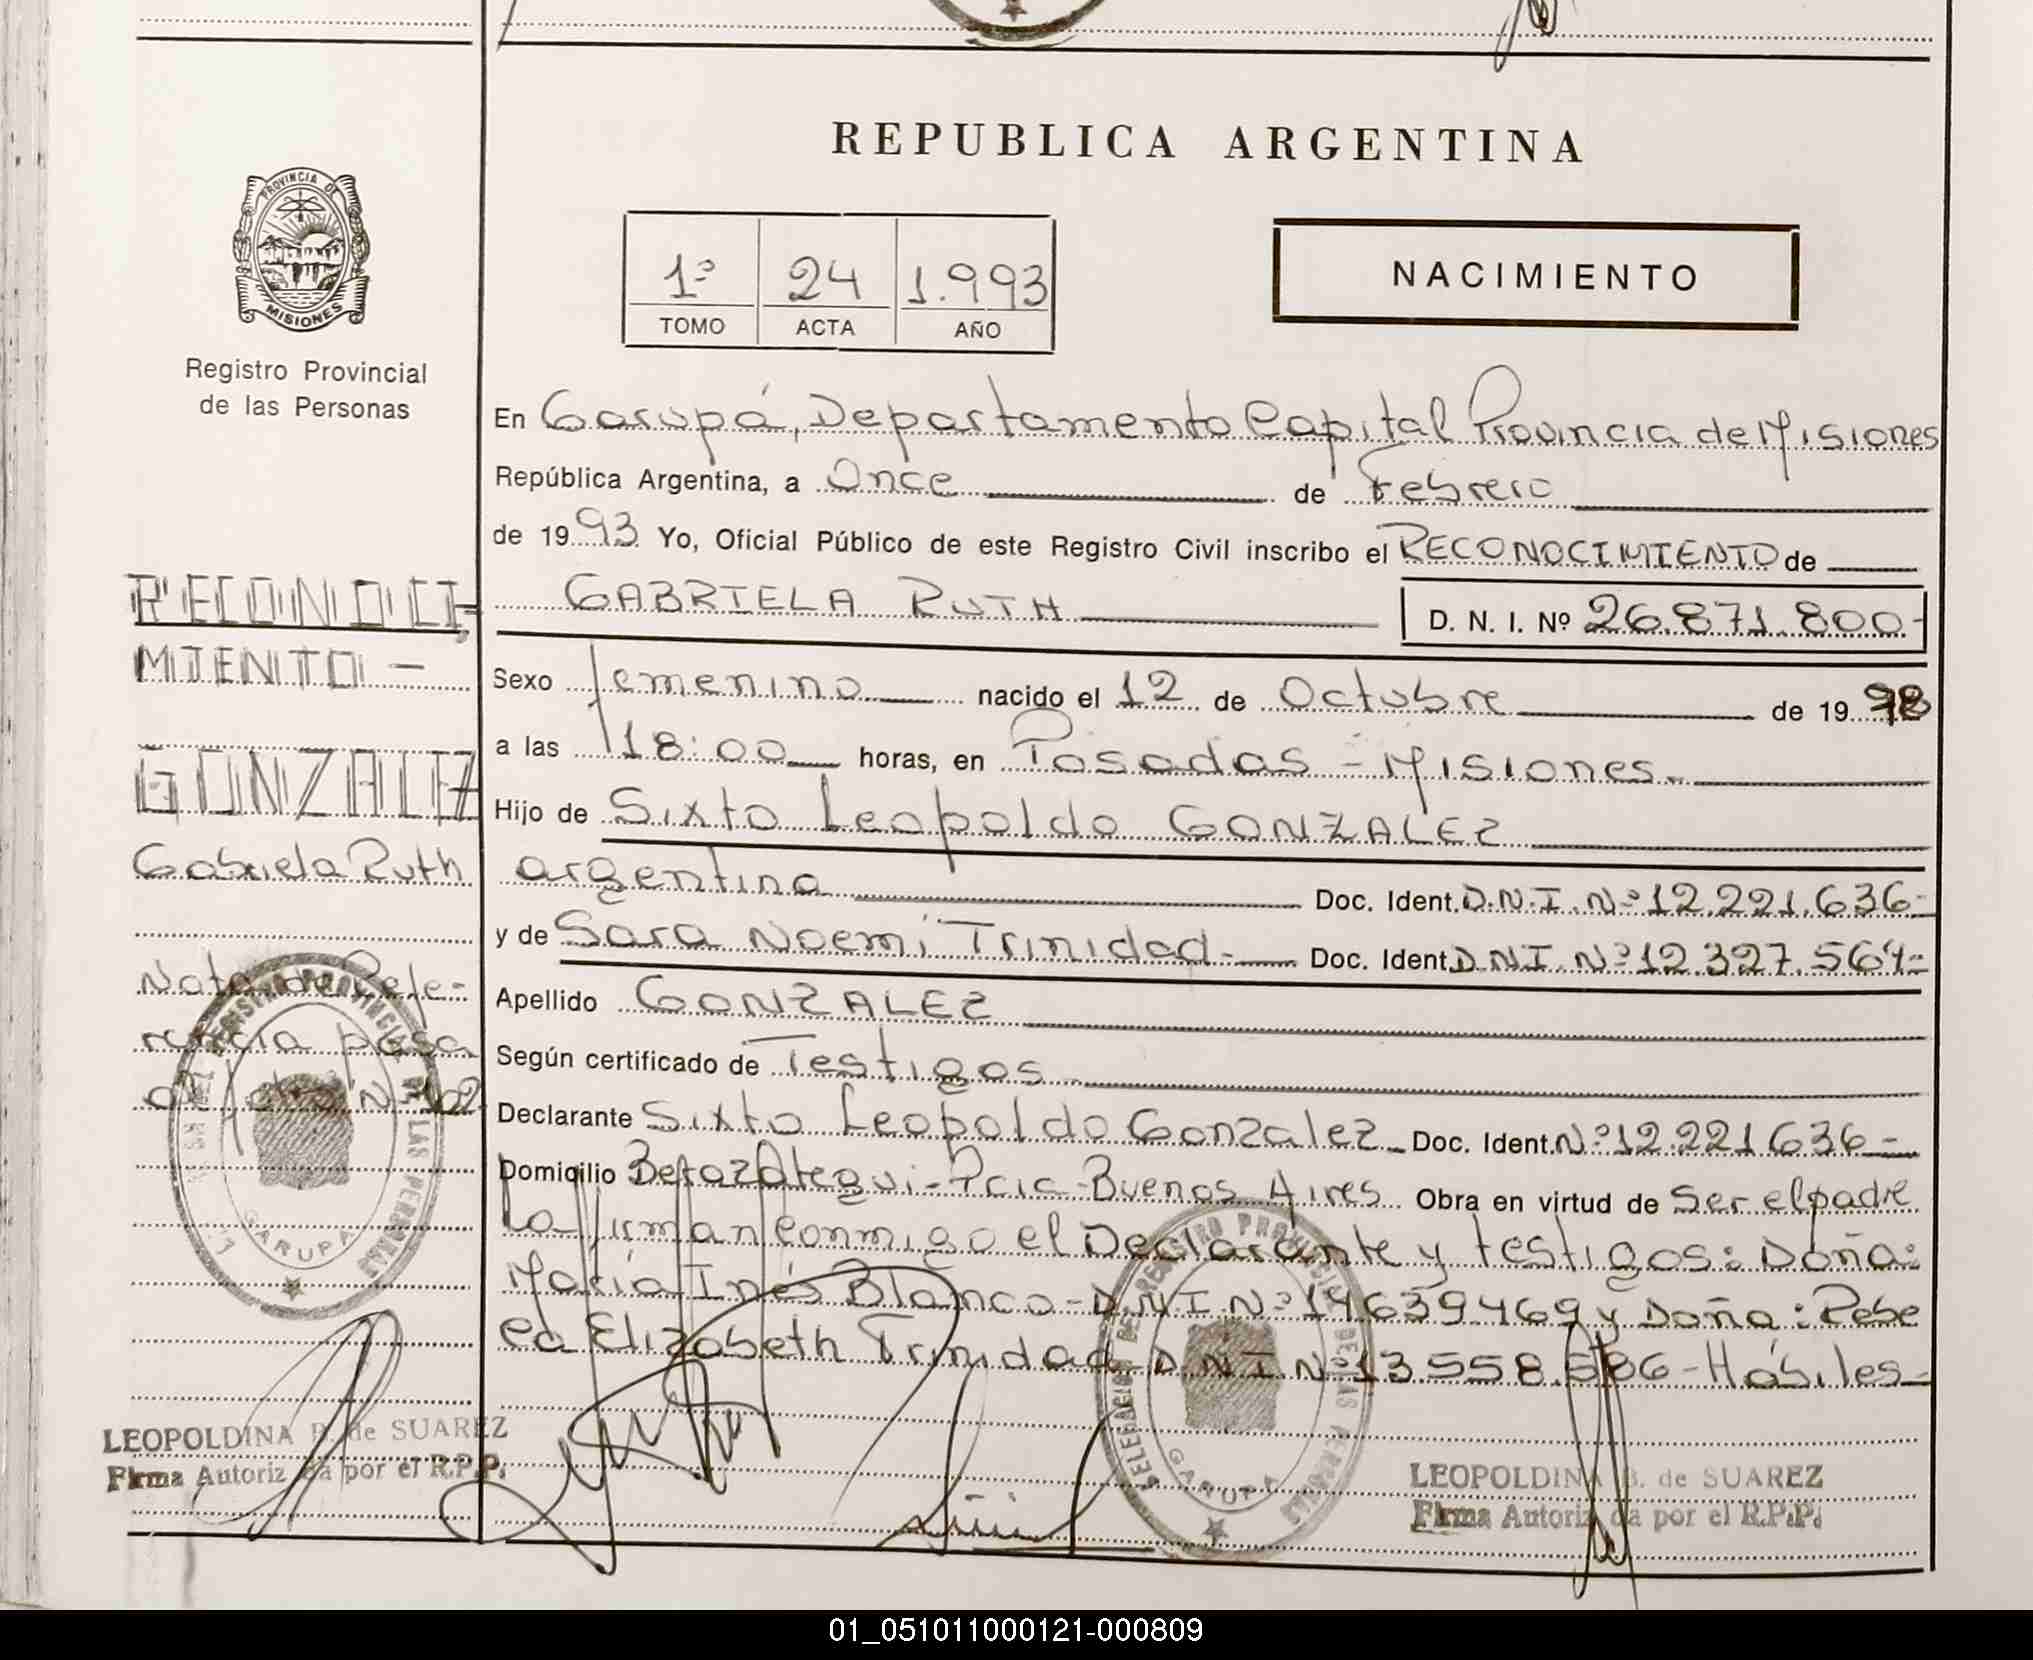 REPUBLICA ARGENTINA
PROVINCIA DE
MISIONES
Registro Provincial
de las Personas
1º 24 1.993
TOMO ACTA AÑO
NACIMIENTO
En Garupá, Departamento Capital Provincia de Misiones
República Argentina, a Once de Febrero
de 1993 Yo, Oficial Público de este Registro Civil inscribo el RECONOCIMIENTO de
GABRIELA RUTH D. N. I. Nº 26.871.800-
Sexo femenino nacido el 12 de Octubre de 19
a las 18:00 horas, en Posadas - Misiones.
Hijo de Sixto Leopoldo GONZALEZ
argentina Doc. Ident. D.N.I. Nº 12.221.636-
y de Sara Noemi Trinidad- Doc. Ident. D.N.I. Nº 12.327.564-
Apellido GONZALEZ
Según certificado de Testigos
Declarante Sixto Leopoldo Gonzalez Doc. Ident. Nº 12.221.636-
Domicilio Berazategui-Pcia-Buenos Aires Obra en virtud de Ser el padre
La firman conmigo el Declarante y testigos: Doña:
María Inés Blanco-D.N.I. Nº 14639469 y Doña: Rebe
ca Elizabeth Trinidad D.N.I. Nº 13.558.586-Hábiles-
RECONOCI-
MIENTO-
GONZALEZ
Gabriela Ruth
Nota de Refe-
rencia pasa
al Nº 102
REGISTRO PROVINCIAL DE LAS PERSONAS
GARUPA
LEOPOLDINA B. de SUAREZ
Firma Autorizada por el R.P.P.
DELEGACION DEL REGISTRO PROVINCIAL DE LAS PERSONAS
GARUPA
LEOPOLDINA B. de SUAREZ
Firma Autorizada por el R.P.P.
01_051011000121-000809